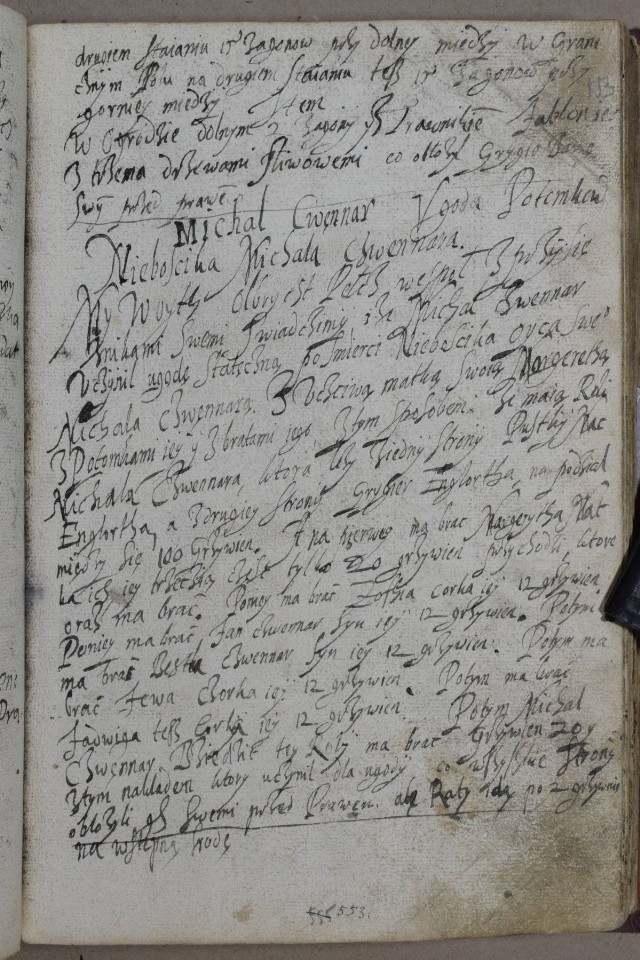 drugiem staianiu 15 Zagonow przy dolney miedzy W Grani
cznym Polu na drugiem staianiu tesz 15 Zagonow przy
gorniey miedzy Item
W Ogrodzie dolnym 2 Zagony
3 trzema drzewami sliwowemi co oblozył Grygier
swy przed prawē
Michal Cwennar Vgoda Potomkow
Nieboscika Michala Chwennara.
My Woyth Obrycht Peth wespoł 3 przysię
znikami swemi swiadczimy isz Michal Chwennar
Vczynil ugodę stateczną po smierci Nieboscika oyca swe°
Michala Chwennara. 3 Vcciwą matką swoią Margerethą
3 Potomkami iey y 3 bratami iego 3tym sposobem. Ze maią Roli
Michala Chwennara, ktora lezy 3iedny strony Pustky Mac
Englertha, a 3drugiey strony Grygier Englertha, na podział
między się 100 Grzywien. A na pierwey ma brac Margeretha Mat
ka ich iey trzecią częsc tylko 20 grzywien przychodzi, ktore
oraz ma brac. Pomey ma brac Zofia corka iey 12 grzywien
Pemiey ma brac Jan Chwennar syn iey 12 grzywien. Potym
ma brac Chwennar syn iey 12 grzywien. Potym ma
brac Jewa Chorka iey 12 grzywien Potym ma brac
Jadwiga tesz Corka iey 12 grzywien. Potym Michal
Chwennar. tey Roly ma brac Grzywien 20 y
3tym nakladem ktory uczynil dla ugody co wszyskie Strony
oblozyli swemi przed Prawem. aby Raty po 2 grzywnie
na wstępną srodę
553.